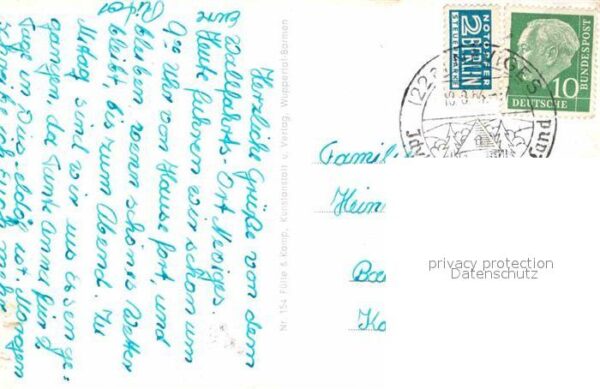 Herzliche Grüße von dem
Wallfahrts-Ort Neviges.
Heute fuhren wir schon um
9 Uhr von Hause fort, und
bleiben wenn schönes Wetter
bleibt, bis zum Abend. Zu
Mittag sind wir uns Essen ge-
gangen, da Tante Anna für 9
Tage in Düsseldorf ist. Morgen
Eure
Nr. 154 Fülle & Kamp, Kunstanstalt u. Verlag, Wuppertal-Barmen
2 BERLIN
NOTOPFER
STEUERMARKE
10
DEUTSCHE
BUNDESPOST
(22
IGES
Famili
Hein
Ba
Ko
privacy protection
Datenschutz